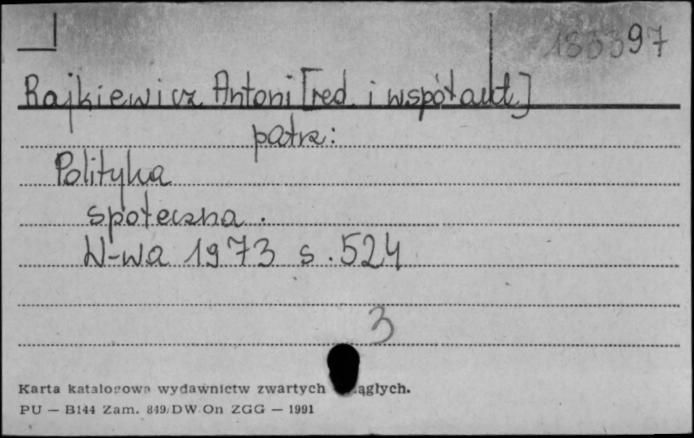 183397
Rajkiewicz Antoni [red. i współaut.]
patrz:
Polityka
społeczna.
W-wa 1973 s. 524
3
Karta katalogowa wydawnictw zwartych ciągłych.
PU — B144 Zam. 849/DW On ZGG — 1991